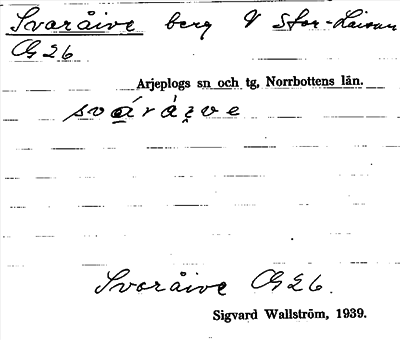 Svaråive berg V Stor-Laisan
G 26
Arjeplogs sn och tg, Norrbottens län.
Svoråive G 26.
Sigvard Wallström, 1939.